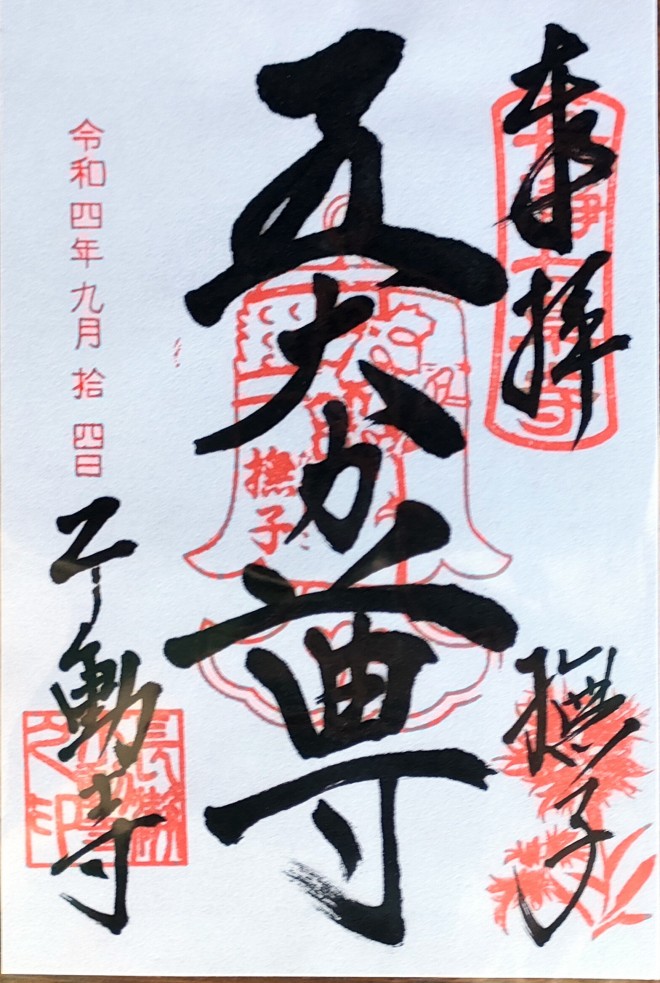 奉拝
撫子
五大力尊
撫子
令和四年九月拾四日
不動寺